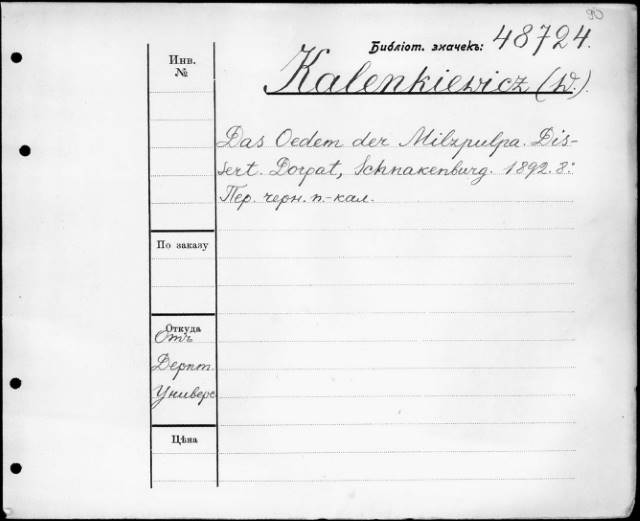 90
Библіот. значекъ: 48724.
Инв. №
Kalenkiewicz (W.).
Das Oedem der Milzpulpa. Dis-
sert. Dorpat, Schnakenburg. 1892. 8:
Пер. черн. п.-кал.
По заказу
Откуда
Отъ
Дерпт.
Универс
Цѣна